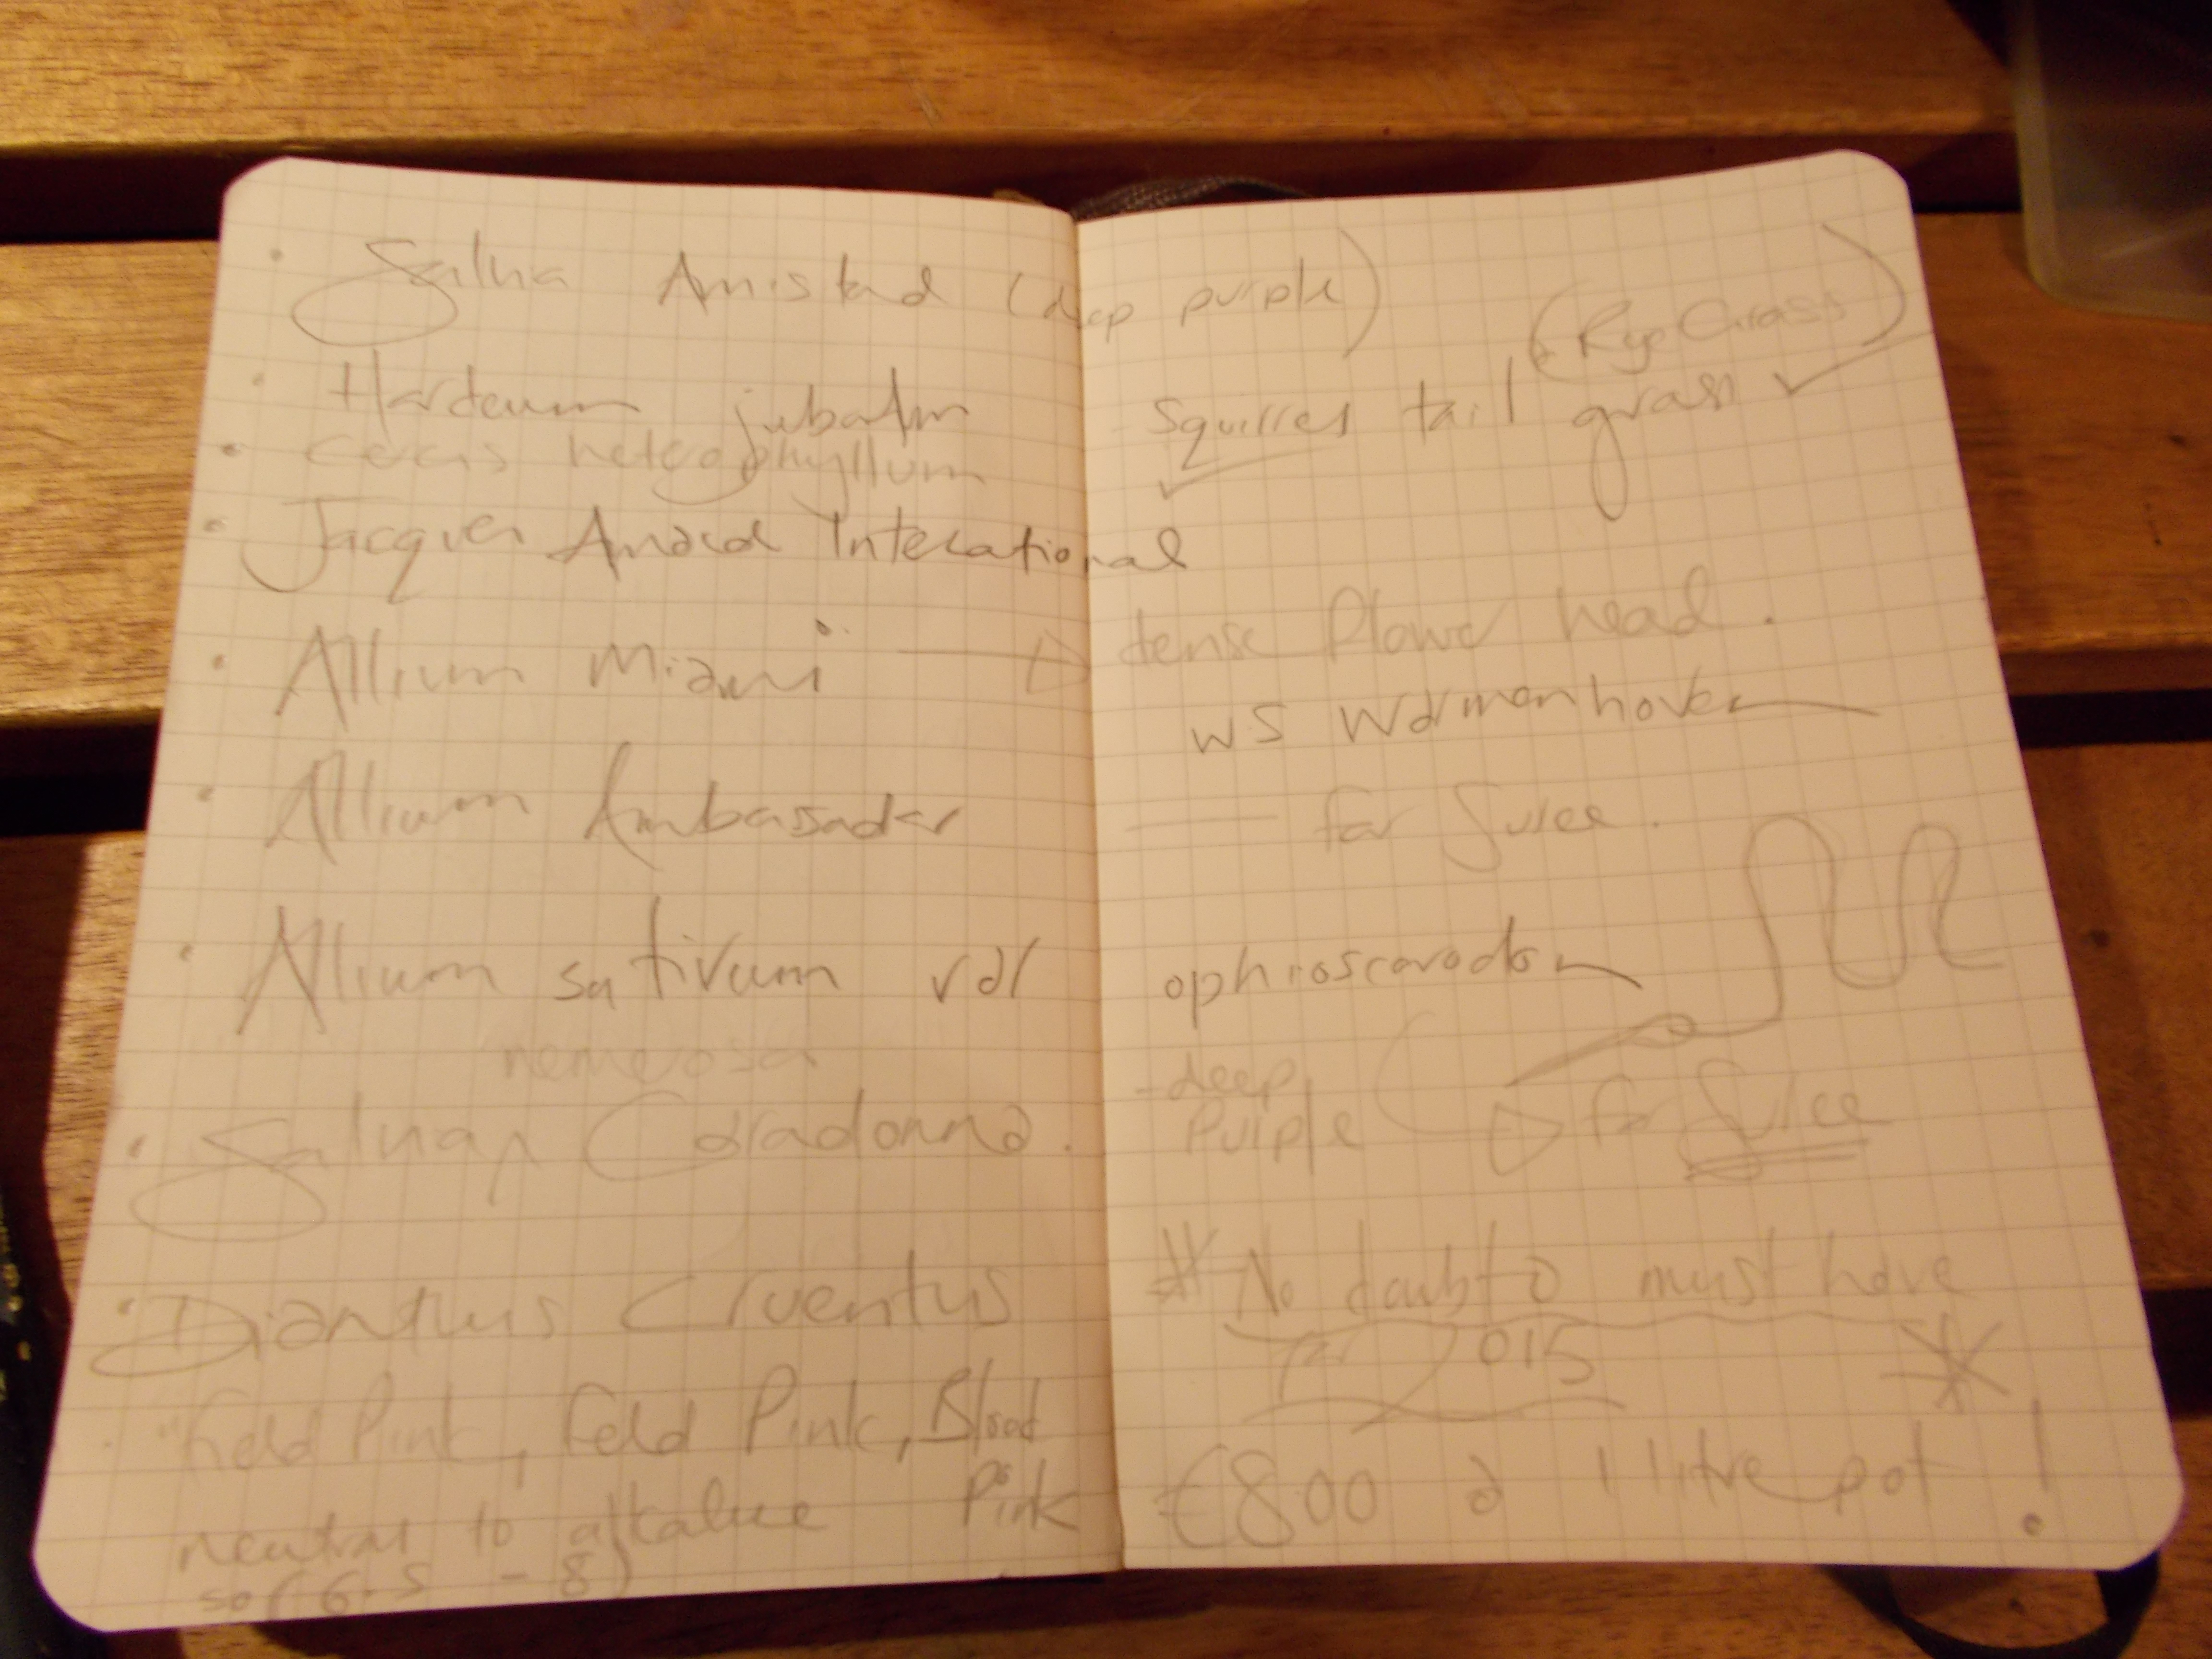 Salvia Amistad (deep purple)
(Rye Grass)
Hordeum jubatum Squirrel tail grass
heterophyllum
Jacques Amand International
Allium Miami dense flower head.
WS Warmenhoven
Allium Ambasador for Juice.
Allium sativum var ophioscorodon
nemerosa
Salvia Caradonna. - deep
Purple for Juice
Dianthus Cruentus No doubt a must have
for 2015
Field Pink, Feld Pink, Blood
Pink
€8.00 a 1 litre pot!
neutral to alkaline
(6.5 - 8)